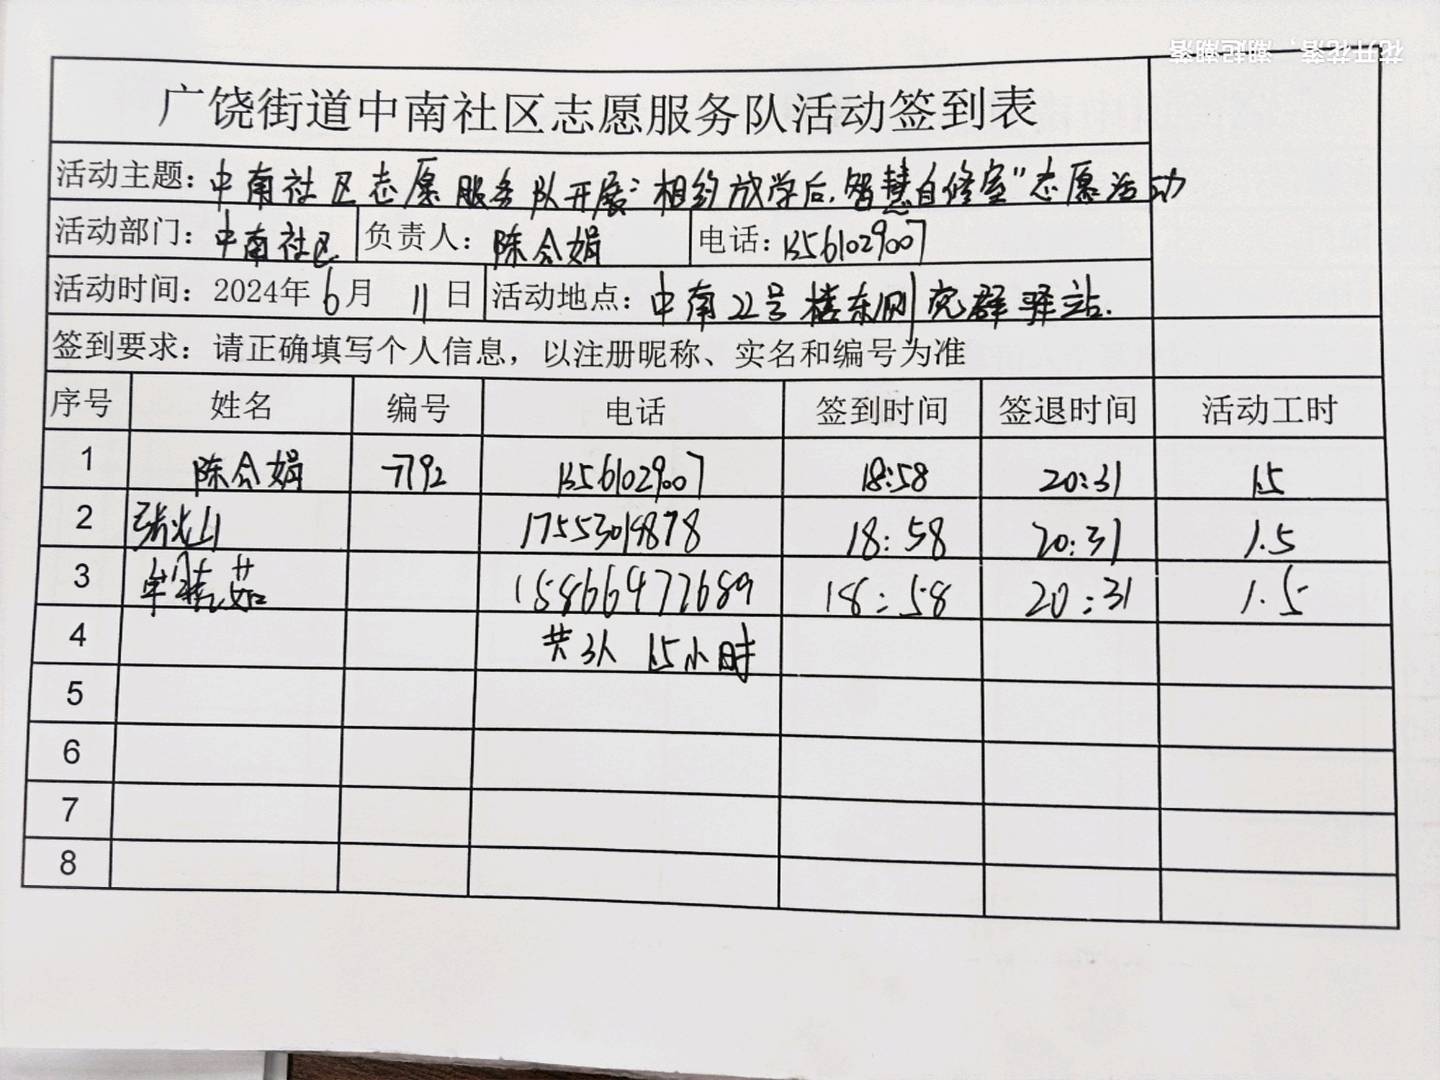 花开花落，潮起潮落
广饶街道中南社区志愿服务队活动签到表
活动主题：中南社区志愿服务队开展“相约放学后，智慧自修室”志愿活动
活动部门：中南社区 负责人：陈令娟 电话：13561029007
活动时间：2024年6月11日 活动地点：中南22号楼东侧党群驿站.
签到要求：请正确填写个人信息，以注册昵称、实名和编号为准
序号 姓名 编号 电话 签到时间 签退时间 活动工时
1 陈令娟 7792 13561029007 18:58 20:31 1.5
2 18:58 20:31 1.5
3 15866477689 18:58 20:31 1.5
4 共3人 1.5小时
5
6
7
8